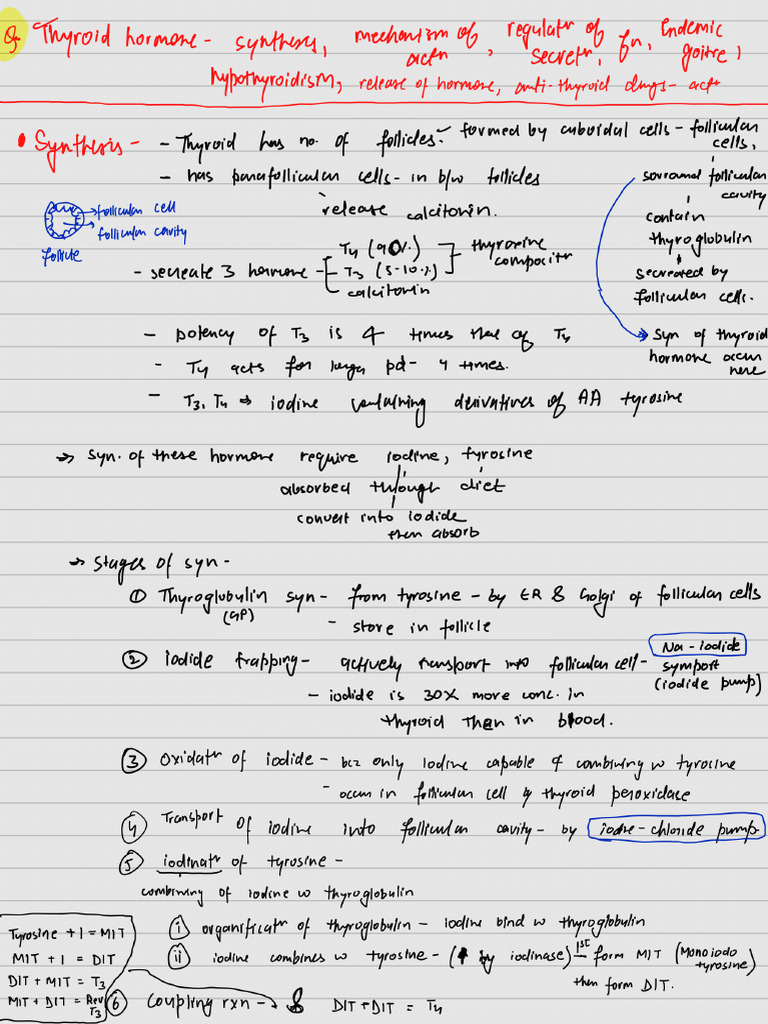 Q Thyroid hormone - synthesis, mechanism of actn, regulatn of secretn, fn, Endemic goitre,
hypothyroidism, release of hormone, anti-thyroid drugs - actn
• Synthesis - - Thyroid has no. of follicles - formed by cuboidal cells - follicular cells,
- has parafollicular cells - in b/w follicles
release calcitonin.
surround follicular cavity
contain
thyroglobulin
secreated by
follicular cells.
→ Syn of thyroid
hormone occur
here
→ follicular cell
→ follicular cavity
follicle
- secreate 3 hormone - T4 (90%)
T3 (5-10%)
calcitonin
thyroxine
composite
- potency of T3 is 4 times that of T4
- T4 acts for longer pd - 4 times.
- T3, T4 → iodine containing derivatives of AA tyrosine
→ Syn. of these hormone require iodine, tyrosine
absorbed through diet
convert into iodide
then absorb
→ Stages of syn -
① Thyroglobulin syn - from tyrosine - by ER & Golgi of follicular cells
(GP)
- store in follicle
② iodide trapping - actively transport into follicular cell - Na - iodide
symport
(iodide pump)
- iodide is 30X more conc. in
thyroid than in blood.
③ Oxidatn of iodide - bcz only Iodine capable of combining w tyrosine
- occur in follicular cell by thyroid peroxidase
④ Transport of iodine into follicular cavity - by iodine - chloride pump
⑤ iodinatn of tyrosine -
combining of iodine w thyroglobulin
i organificatn of thyroglobulin - iodine bind w thyroglobulin
ii iodine combines w tyrosine - (by iodinase) 1st form MIT (Monoiodo tyrosine)
then form DIT.
Tyrosine + I = MIT
MIT + I = DIT
DIT + MIT = T3
MIT + DIT = Rev T3
⑥ Coupling rxn - DIT + DIT = T4